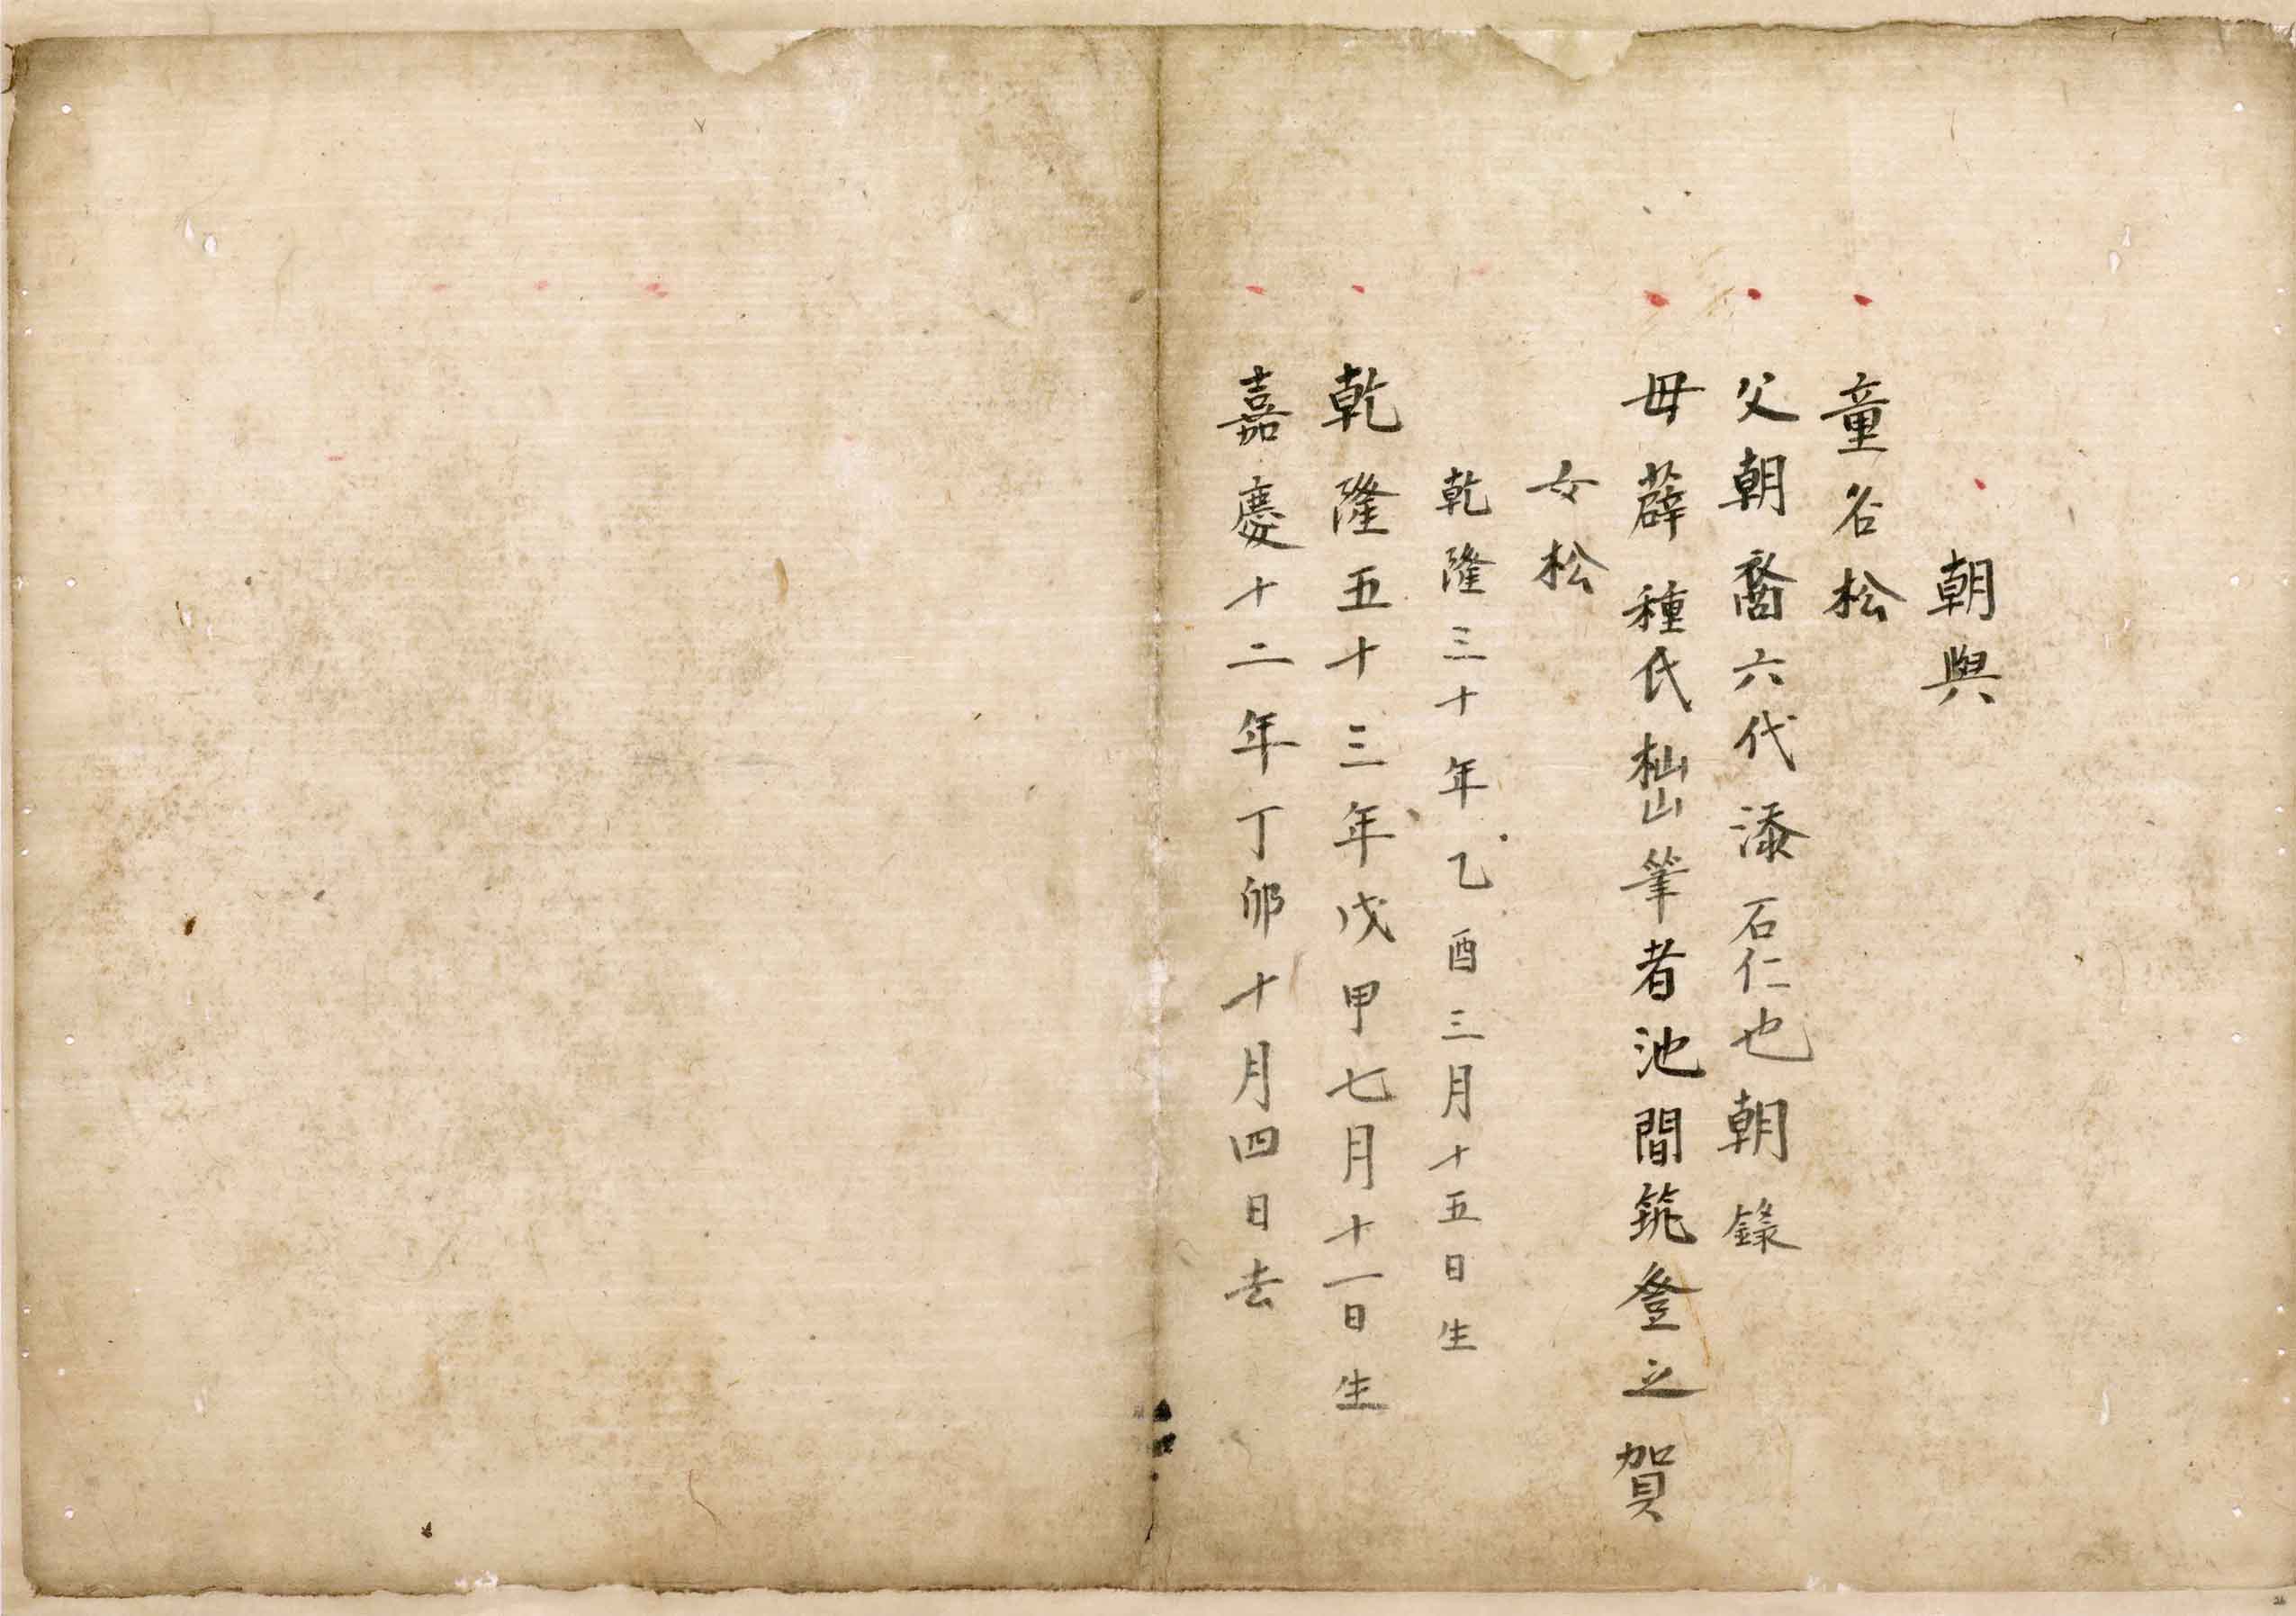 朝與
童名松
父朝裔六代添石仁也朝錄
母薜種氏杣山筆者池間筑登之賀
女松
乾隆三十年乙酉三月十五日生
乾隆五十三年戊甲七月十一日生
嘉慶十二年丁卯十月四日去